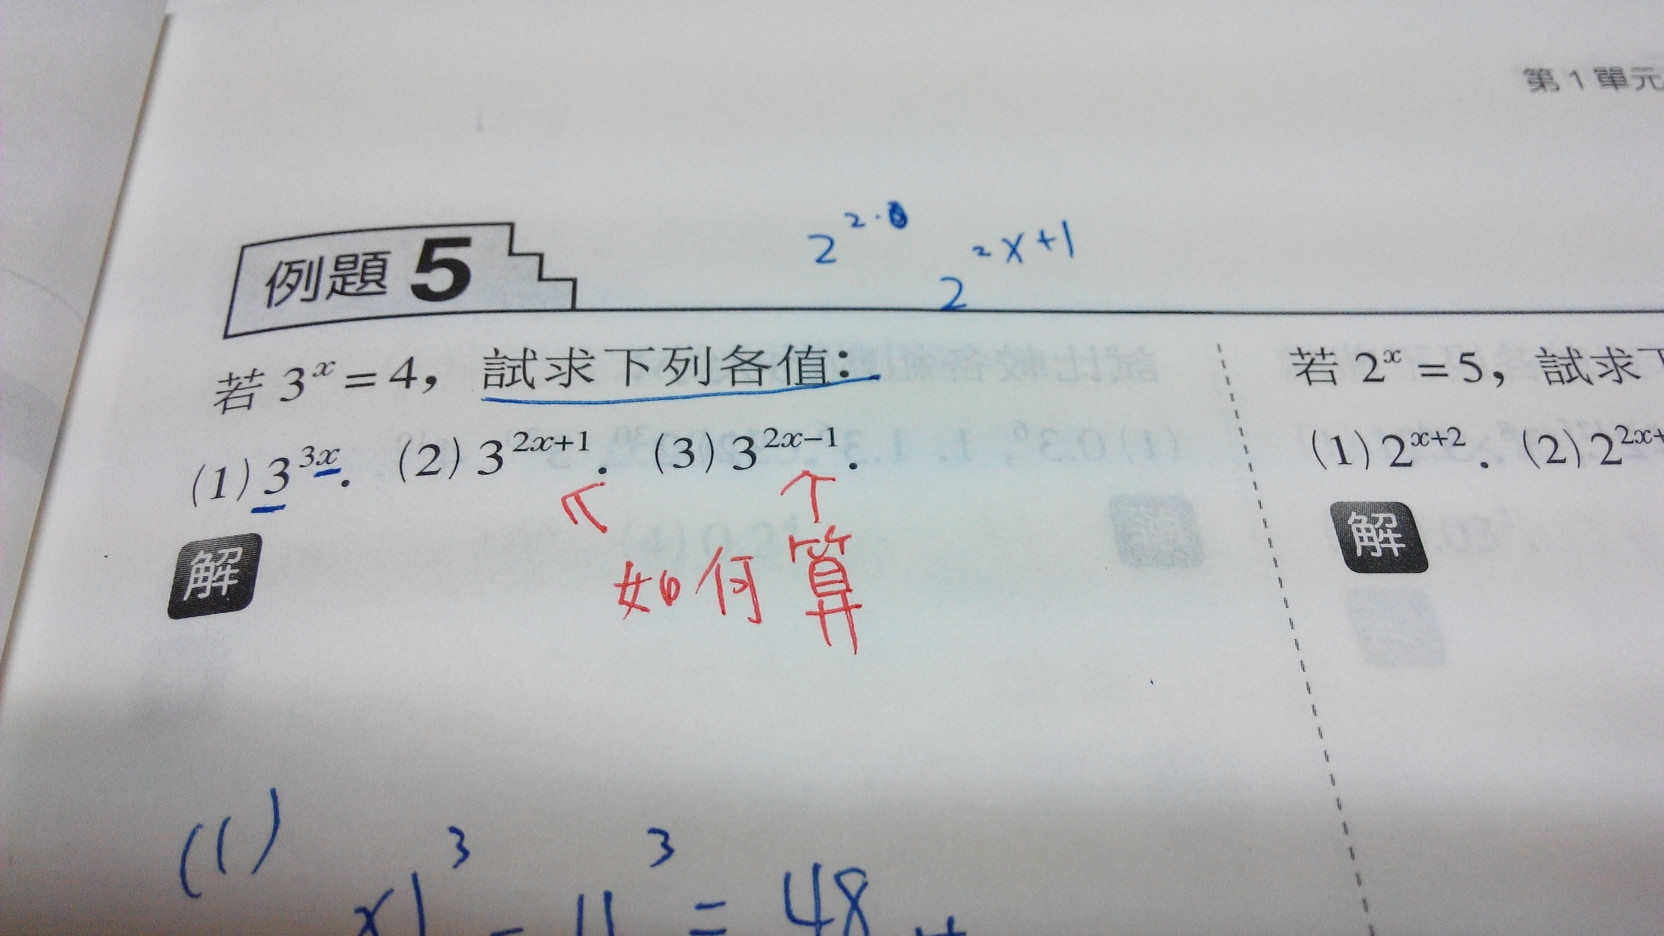 第1單元
2^{2·0} 2^{2x+1}
例題5
若 3^x = 4，試求下列各值：
(1) 3^{3x}. (2) 3^{2x+1}. (3) 3^{2x−1}.
解
如何算
若 2^x = 5，試求
(1) 2^{x+2}. (2) 2^{2x+
解
(1)
3 3
= 48